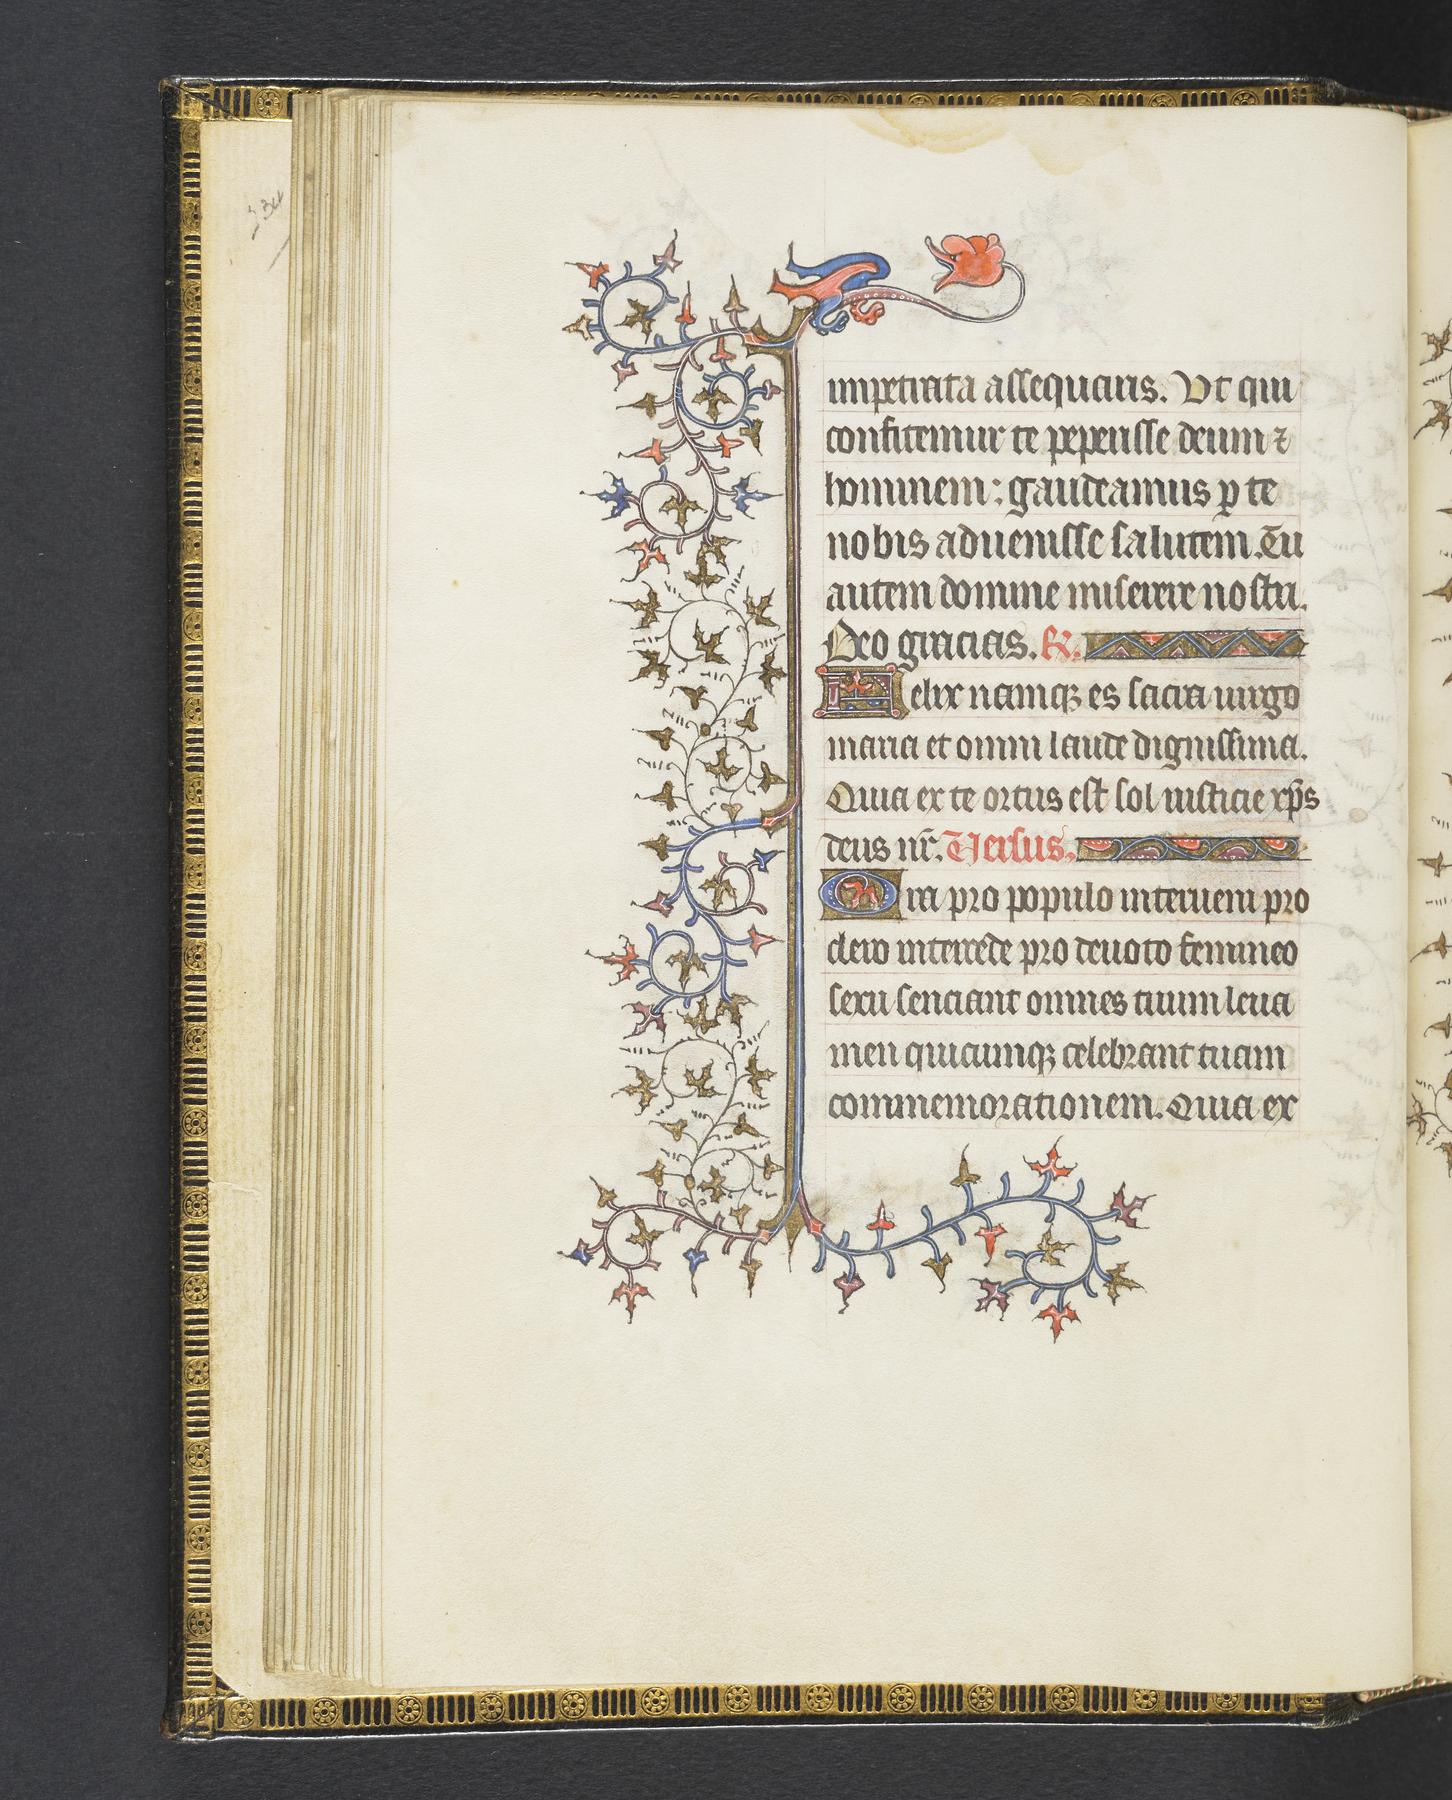 334
impetrata assequaris. Vt qui
confitemur te peperisse deum ⁊
hominem: gaudeamus ꝑ te
nobis aduenisse salutem. Tu
autem domine miserere nostri.
Deo gracias. ℟.
Felix namqꝫ es sacra uirgo
maria et omni laude dignissima.
Quia ex te ortus est sol iusticie xp̄s
deus nr̄. Versus.
Ora pro populo interueni pro
clero intercede pro deuoto femineo
sexu senciant omnes tuum leua
men quicumqꝫ celebrant tuam
commemorationem. Quia ex